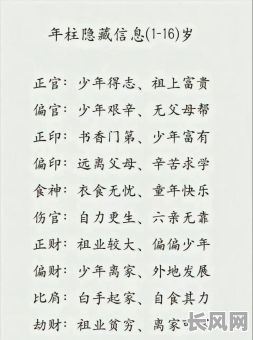 年柱隐藏信息(1-16)岁
正官：少年得志、祖上富贵
偏官：少年艰辛、无父母帮
正印：书香门第、少年富有
偏印：远离父母、辛苦求学
食神：衣食无忧、童年快乐
伤官：自力更生、六亲无靠
正财：祖业较大、偏偏少年
偏财：少年离家、外地发展
比肩：白手起家、自食其力
劫财：祖业贫穷、离家
长风网